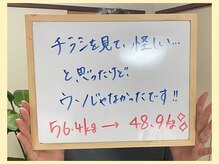 チラシを見て、怪しい…
と、思ったけど、
ウソじゃなかったです!!
56.4kg → 48.9kg